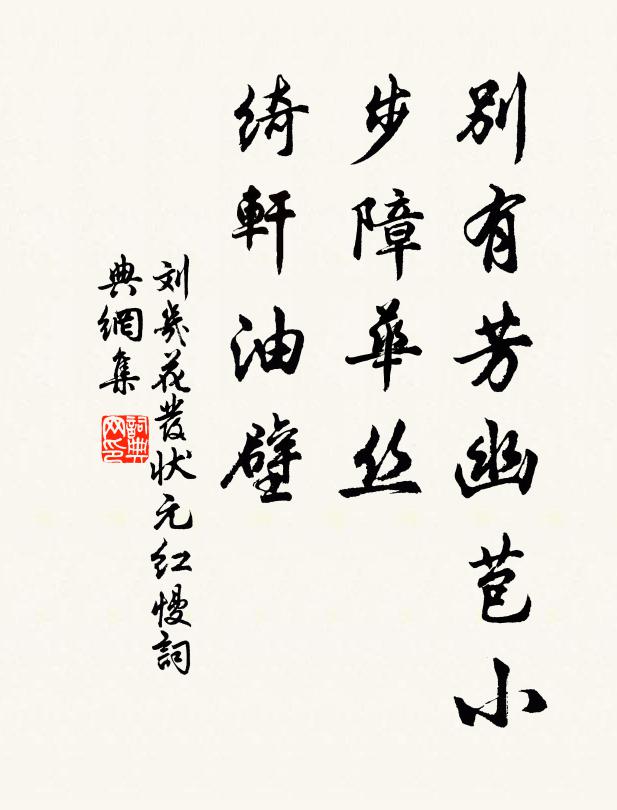 別有芳幽苞小
步障華丝
綺軒油壁
刘幾花發状元红慢詞
典網集
詞典网印